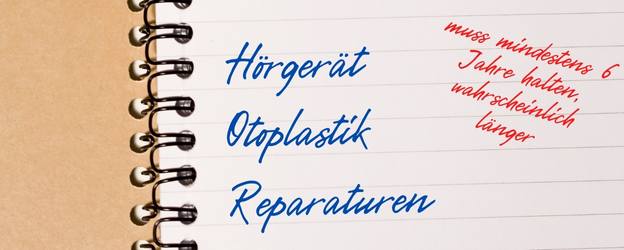 Hörgerät
Otoplastik
Reparaturen
muss mindestens 6
Jahre halten,
wahrscheinlich
länger